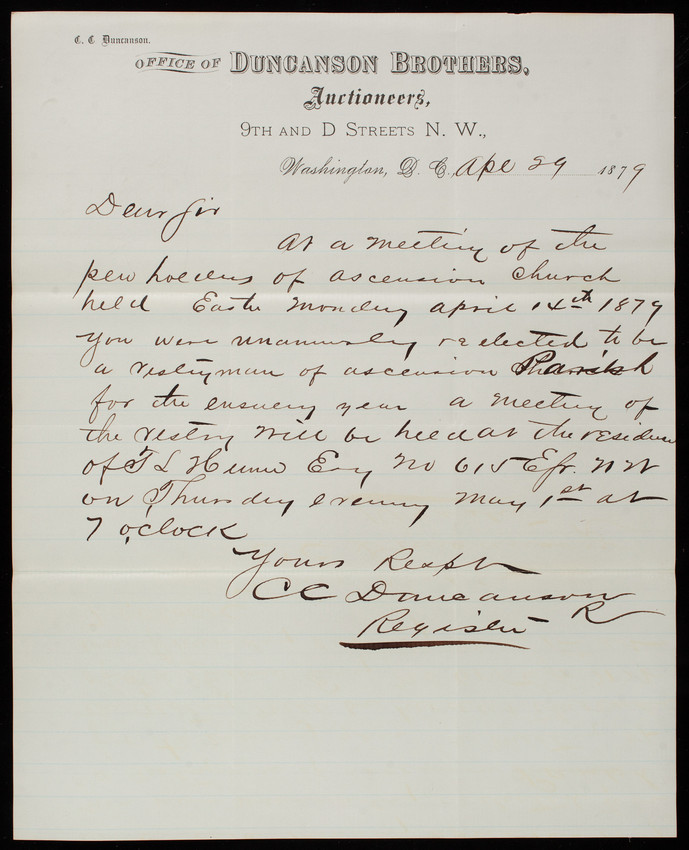 C. C. Duncanson.
OFFICE OF DUNCANSON BROTHERS,
Auctioneers,
9TH AND D STREETS N. W.,
Washington, D. C., Apl 29 1879
Dear Sir
At a meeting of the
pew holders of ascension church
held Easter Monday april 14th 1879
you were unanimously reelected to be
a vestryman of ascension Parish
for the ensuing year a meeting of
the vestry will be held at the residence
of T L Hume Esq No 615 E St. N W
on Thursday evening May 1st at
7 o'clock
Yours Respt
C C Duncanson
Register